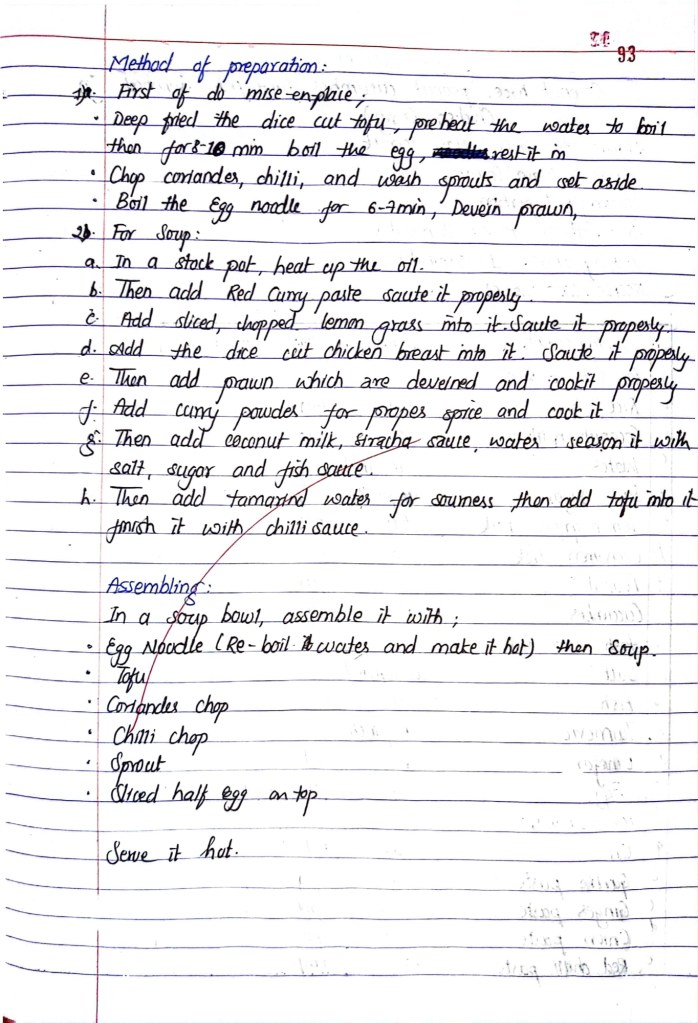 93
Method of preparation:
1) First of do mise-en-place;
• Deep fried the dice cut tofu, preheat the water to boil
then for 8-10 min boil the egg, rest it in
• Chop coriander, chilli, and wash sprouts and set aside.
• Boil the Egg noodle for 6-7min, Devein prawn,
2). For Soup:
a. In a stock pot, heat up the oil.
b. Then add Red Curry paste saute it properly.
c. Add sliced, chopped lemon grass into it. Saute it properly.
d. Add the dice cut chicken breast into it. Saute it properly
e. Then add prawn which are deveined and cook it properly
f. Add curry powder for proper spice and cook it
g. Then add coconut milk, siracha sauce, water season it with
salt, sugar and fish sauce.
h. Then add tamarind water for sourness then add tofu into it
finish it with chilli sauce.
Assembling:
In a soup bowl, assemble it with;
• Egg Noodle (Re-boil water and make it hot) then Soup.
• Tofu
• Coriander chop
• Chilli chop
• Sprout
• Sliced half egg on top
Serve it hot.